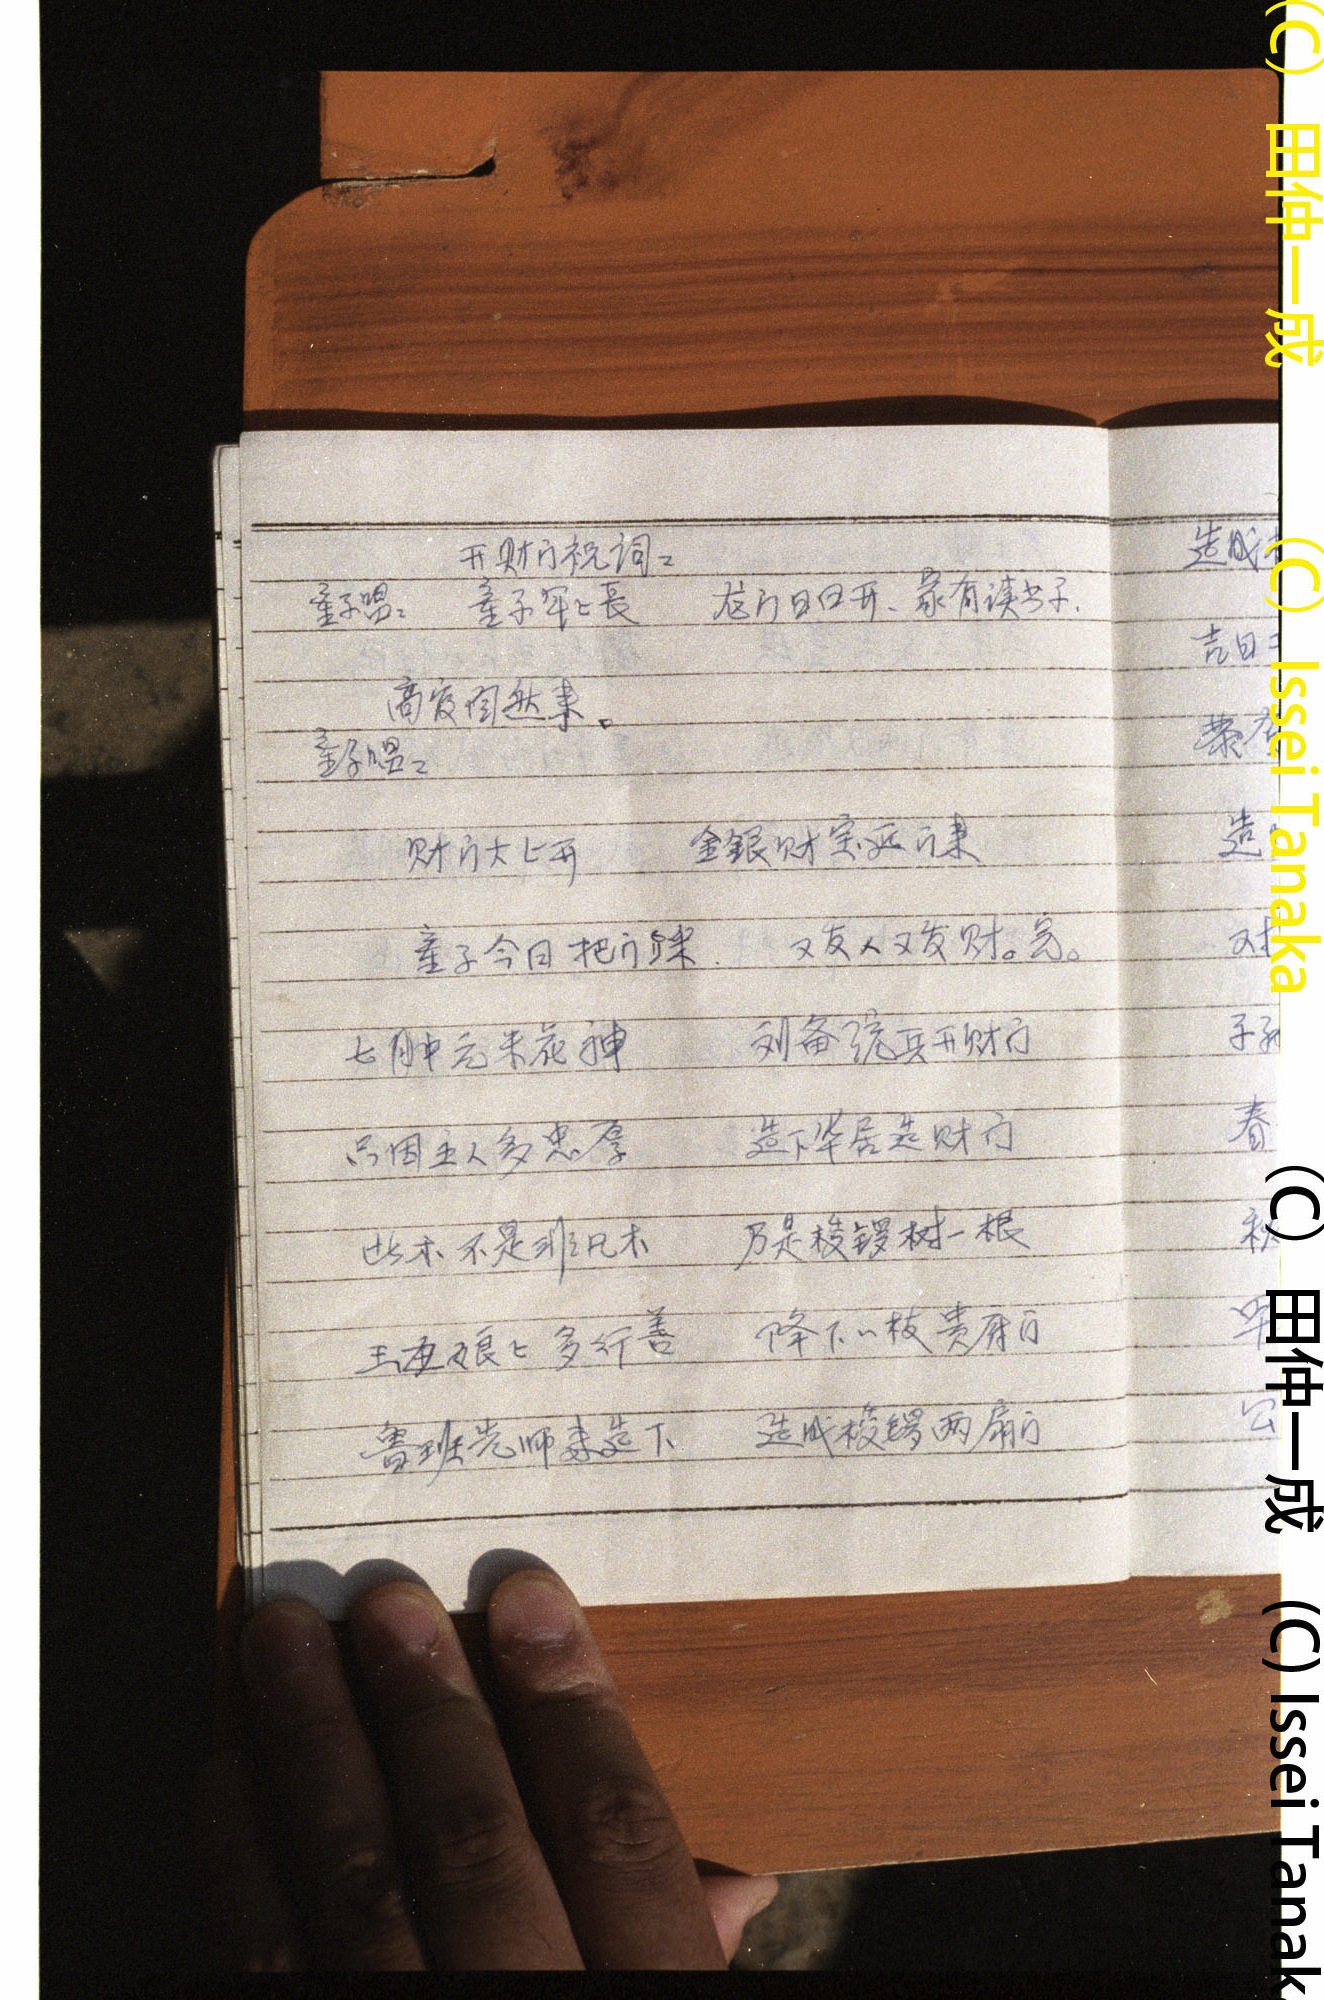 开财门祝词：
童子唱： 童子年々長 龙门日日开、家有读书子.
高官自然来。
童子唱：
财门大々开 金銀财宝进门来
童子今日把门踩. 又发人又发财。完。
七月中元禾花神 刘备统兵开财门
只因主人多忠厚 造下华居造财门
此木不是非凡木 乃是梭锣树一根
王母娘々多行善 降下一枝贵府门
鲁班先师来造下 造成梭锣两扇门
造成
吉日
荣
造
对
子孙
春
秋
华
公
(C) 田仲一成 (C) Issei Tanaka (C) 田仲一成 (C) Issei Tanak